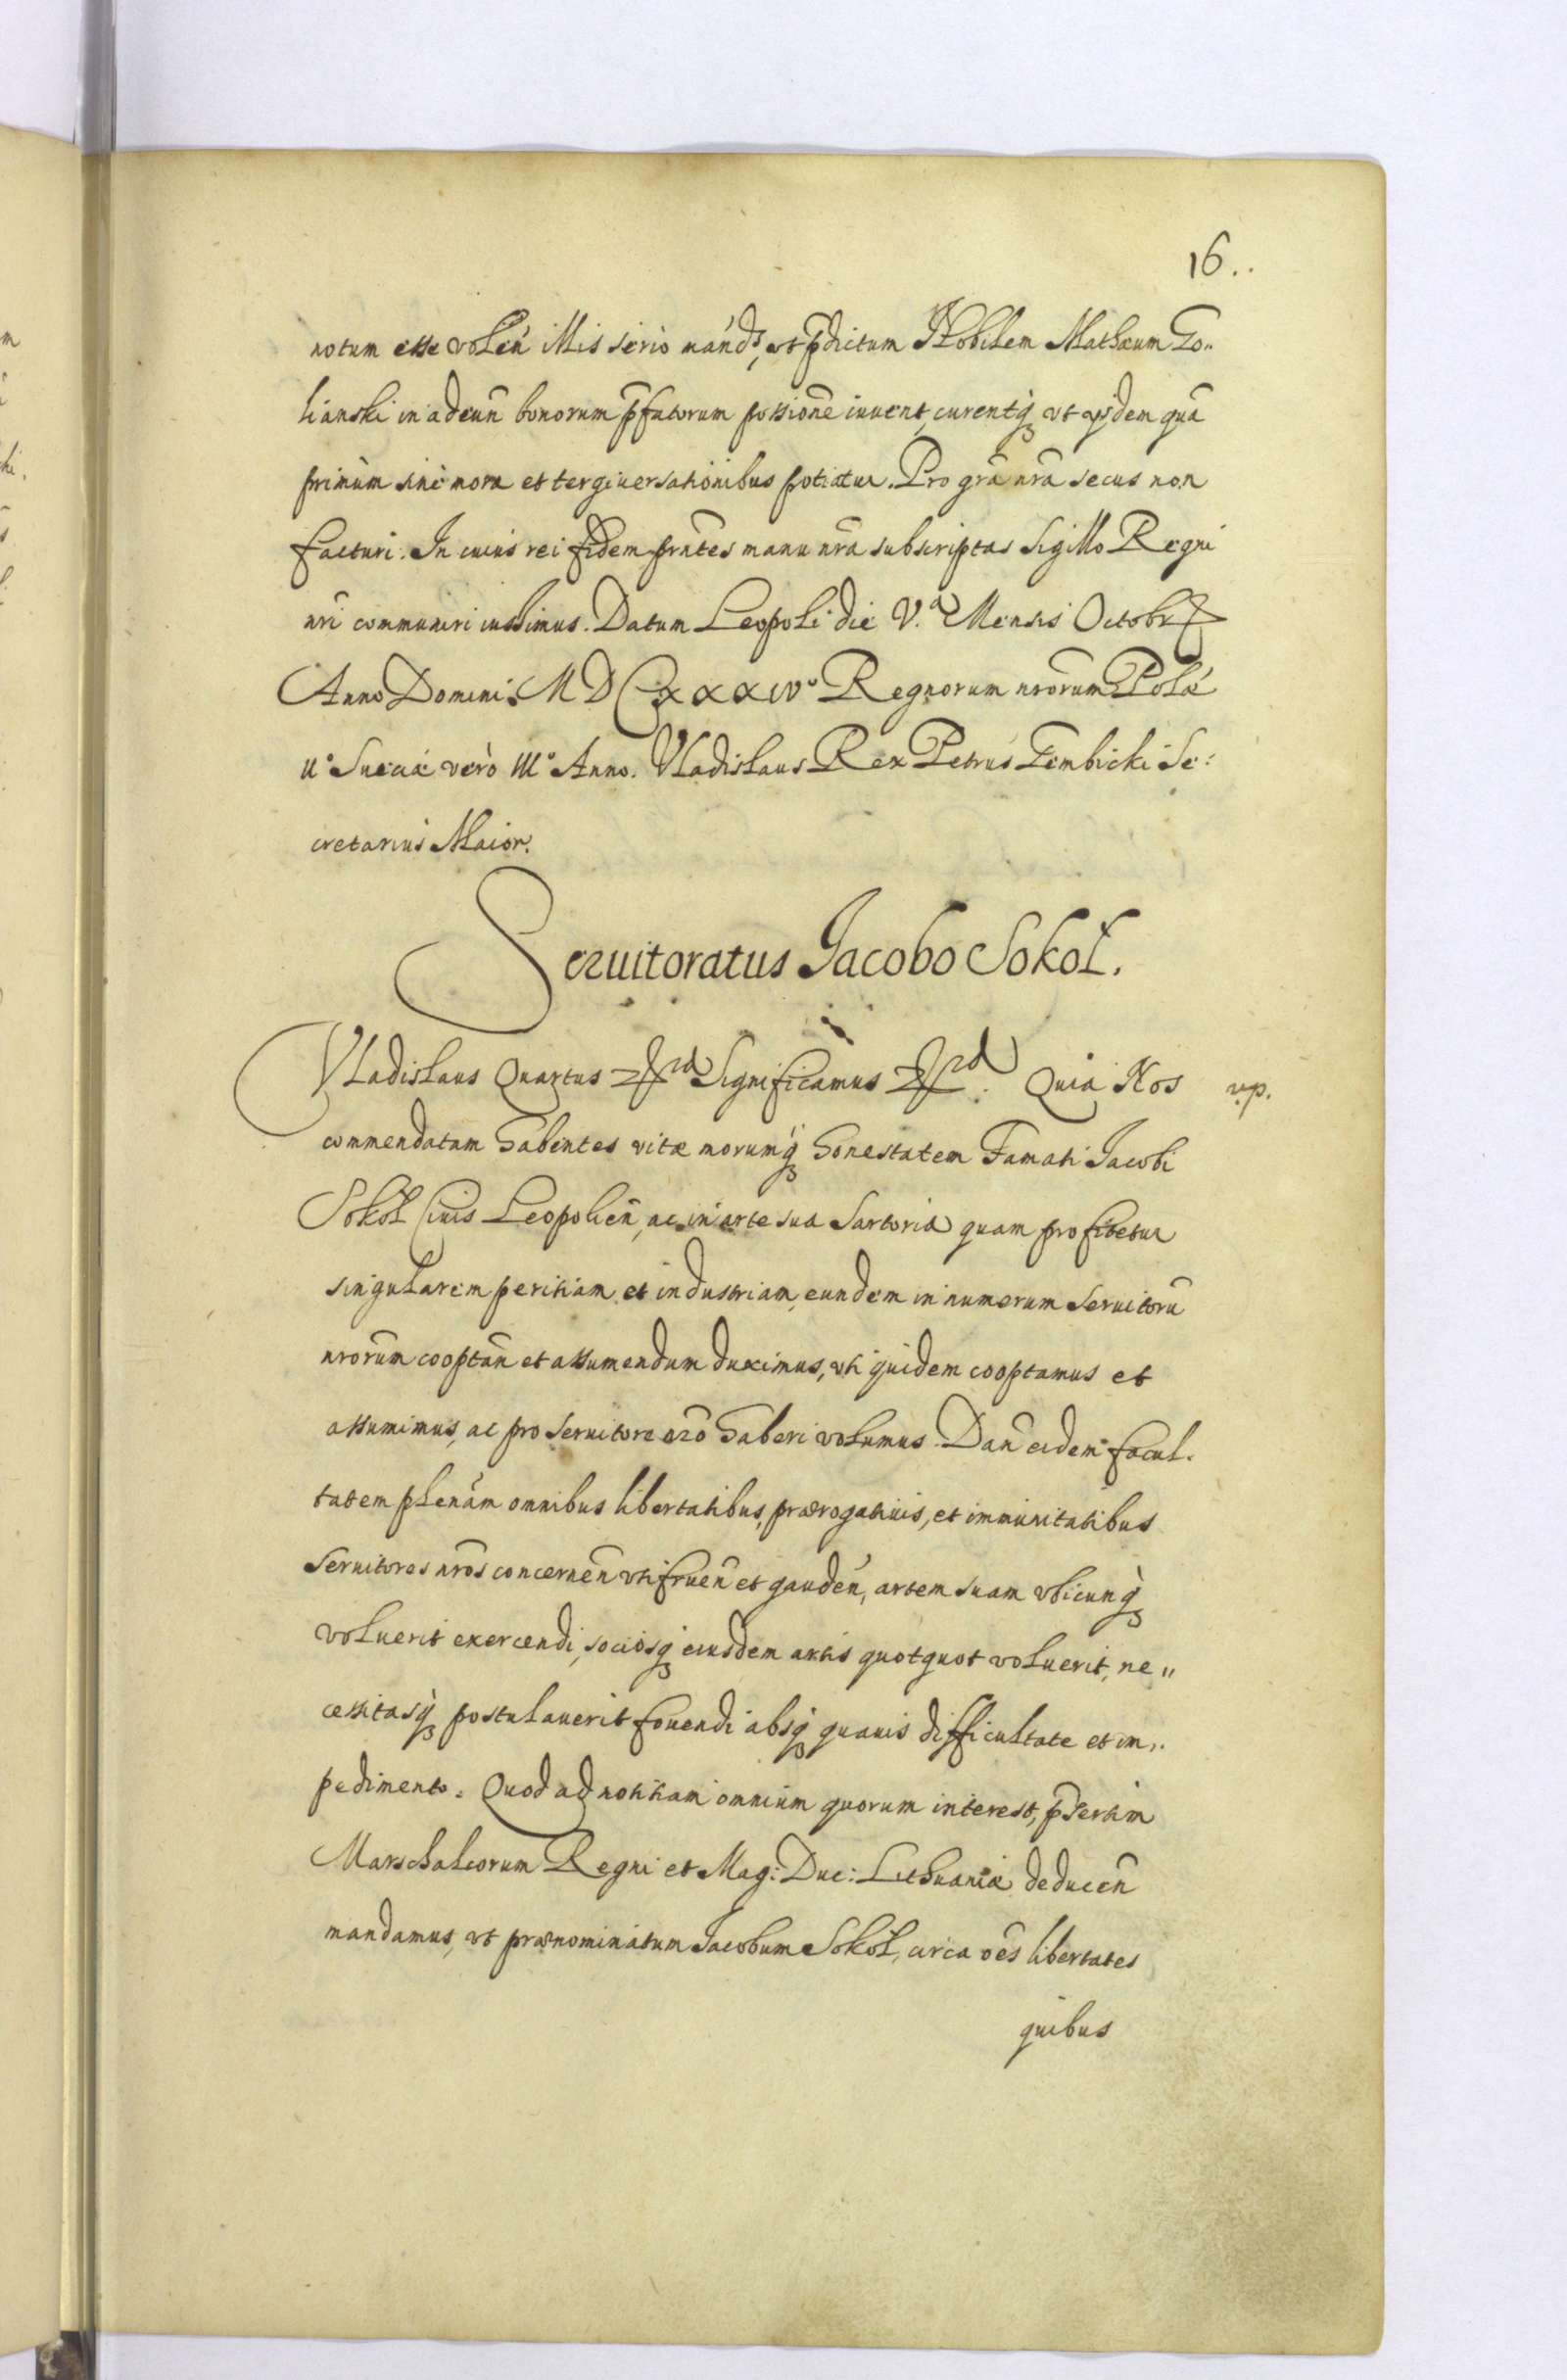 16..
notum esse volen̄ illis serio mand̄, ut p̄dictum Nobilem Mathæum Go„
lianski in adeun̄ bonorum p̄fatorum possione iuuent, curentq̃ ut ysdem quā
primùm sine mora et tergiuersationibus potiatur. Pro grā nrā secus non
facturi. In cuius rei fidem prntes manu nrā subscriptas Sigillo Regni
nri communiri iussimus. Datum Leopoli die V.a Mensis Octobr
Anno Domini MDCXXXIVo Regnorum nrorum Polæ
IIo Sueciæ verò IIIo Anno. Vladislaus Rex Petrus Gembicki Se:
cretarius Maior.
Seruitoratus Jacobo Sokoł.
Vladislaus Quartus Significamus Quia Nos v.p.
commendatam habentes vitæ morumq̃ honestatem Famati Jacobi
Sokoł Ciuis Leopolien̄, ac in arte sua Sartoria quam profitetur
singularem peritiam et industriam, eundem in numerum Seruitorū
nrorum cooptan̄ et assumendum duximus, uti quidem cooptamus et
assumimus, ac pro Seruitore nro haberi volumus. Dan̄ eidem facul.
tatem plenam omnibus libertatibus, prærogatiuis, et immunitatibus
Seruitores nros concernen̄ uti fruen̄ et gauden̄, artem suam ubicunq̃
voluerit exercendi, sociosq̃ eiusdem artis quotquot voluerit, ne„
cessitasq̃ postulauerit fouendi absq̃ quauis difficultate et im„
pedimento. Quod ad notitiam omnium quorum interest, p̄sertim
Marschalcorum Regni et Mag: Duc: Lithuaniæ deducen̄
mandamus, ut prænominatum Jacobum Sokoł, circa oēs libertates
quibus